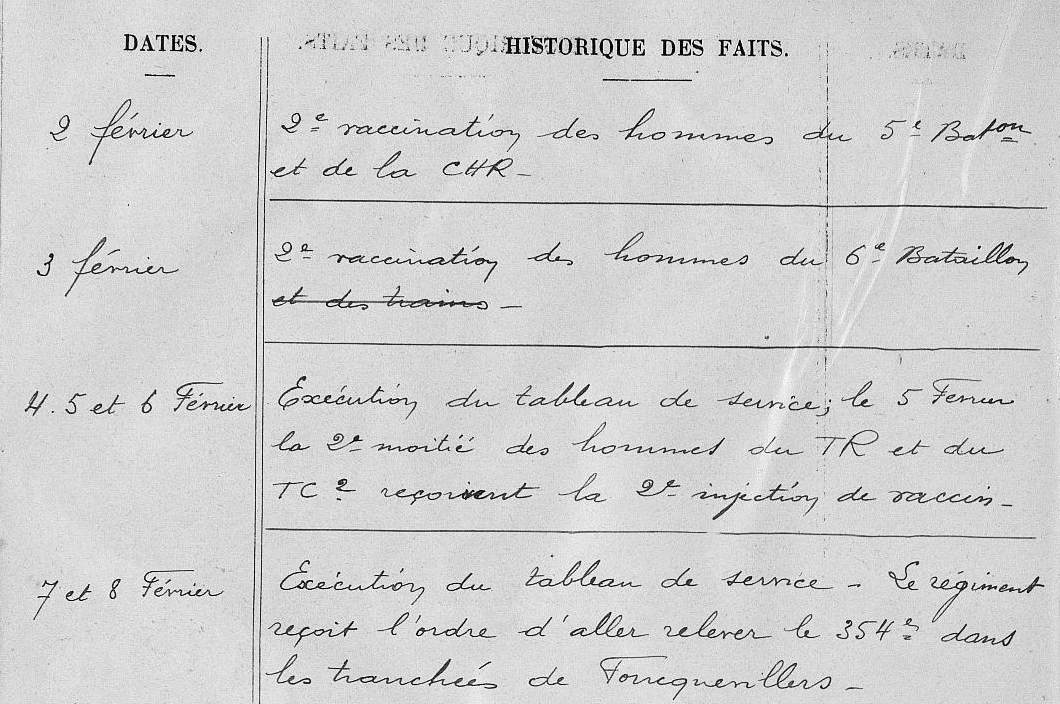 DATES.
HISTORIQUE DES FAITS.
2 février
2e vaccination des hommes du 5e Baton
et de la CHR -
3 février
2e vaccination des hommes du 6e Bataillon
et des trains -
4. 5 et 6 Février
Exécution du tableau de service; le 5 Fevrier
la 2e moitié des hommes du TR et du
TC 2 reçoivent la 2e injection de vaccin -
7 et 8 Février
Exécution du tableau de service - Le régiment
reçoit l'ordre d'aller relever le 354e dans
les tranchées de Foncquevillers -